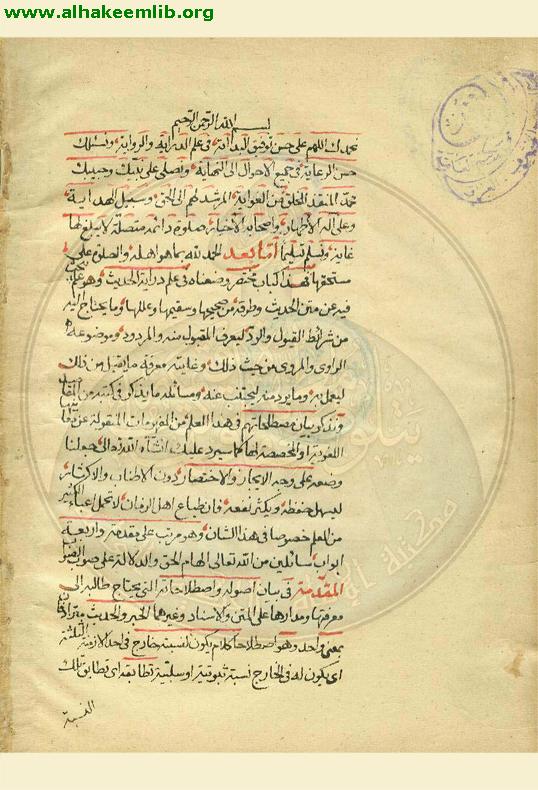 www.alhakeemlib.org
بسم الله الرحمن الرحيم
نحمدك اللهم على حسن توفيق البداية في علم الدراية والرواية ونسئلك
حسن الرعاية في جميع الاحوال الى النهاية ونصلي على نبيك وحبيبك
محمد المنقذ الخلق من الغواية المرشد لهم الى الحق وسبيل الهداية
وعلى آله الاطهار واصحابه الاخيار صلوة دائمة متصلة لا يبلغ لها
غاية وتسلم تسليما اما بعد الحمد لله بما هو اهله والصلوة على
مستحقها فهذا كتاب مختصر وضعناه في علم دراية الحديث وهو علم يبحث
فيه عن متن الحديث وطرقه من صحيحها وسقيمها وعللها وما يحتاج اليه
من شرائط القبول والرد ليعرف المقبول منه والمردود وموضوعه
الراوى والمروى من حيث ذلك وغايته معرفة ما يقبل من ذلك
ليعمل به وما يرد منه ليجتنب عنه ومسائله ما يذكر في كتبه من المقاصد
ونذكر بيان مصطلحاتهم في هذا العلم من المفهومات المنقولة عن
اللغوية او المخصصة لها كما سيرد عليك انشآء الله تعالى جعلنا
وضعه على وجه الايجاز والاختصار دون الاطناب والاكثار
ليسهل حفظه ويكثر نفعه فان طباع اهل الزمان لا تحمل اعباء الكثير
من العلم خصوصا في هذا الشان وهو مرتب على مقدمة واربعة
ابواب سائلين من الله تعالى الهام الحق والدلالة على صوب الصواب
المقدمة في بيان اصوله واصطلاحاته التي يحتاج طالبه الى
معرفتها ومدارها على المتن والاسناد وغيرهما الخبر والحديث مترادفان
بمعنى واحد وهو اصطلاحا كلام يكون لنسبته خارج في احد الازمنة الثلثة
اى يكون له في الخارج نسبة ثبوتية او سلبية تطابقه اى تطابق تلك
النسبة